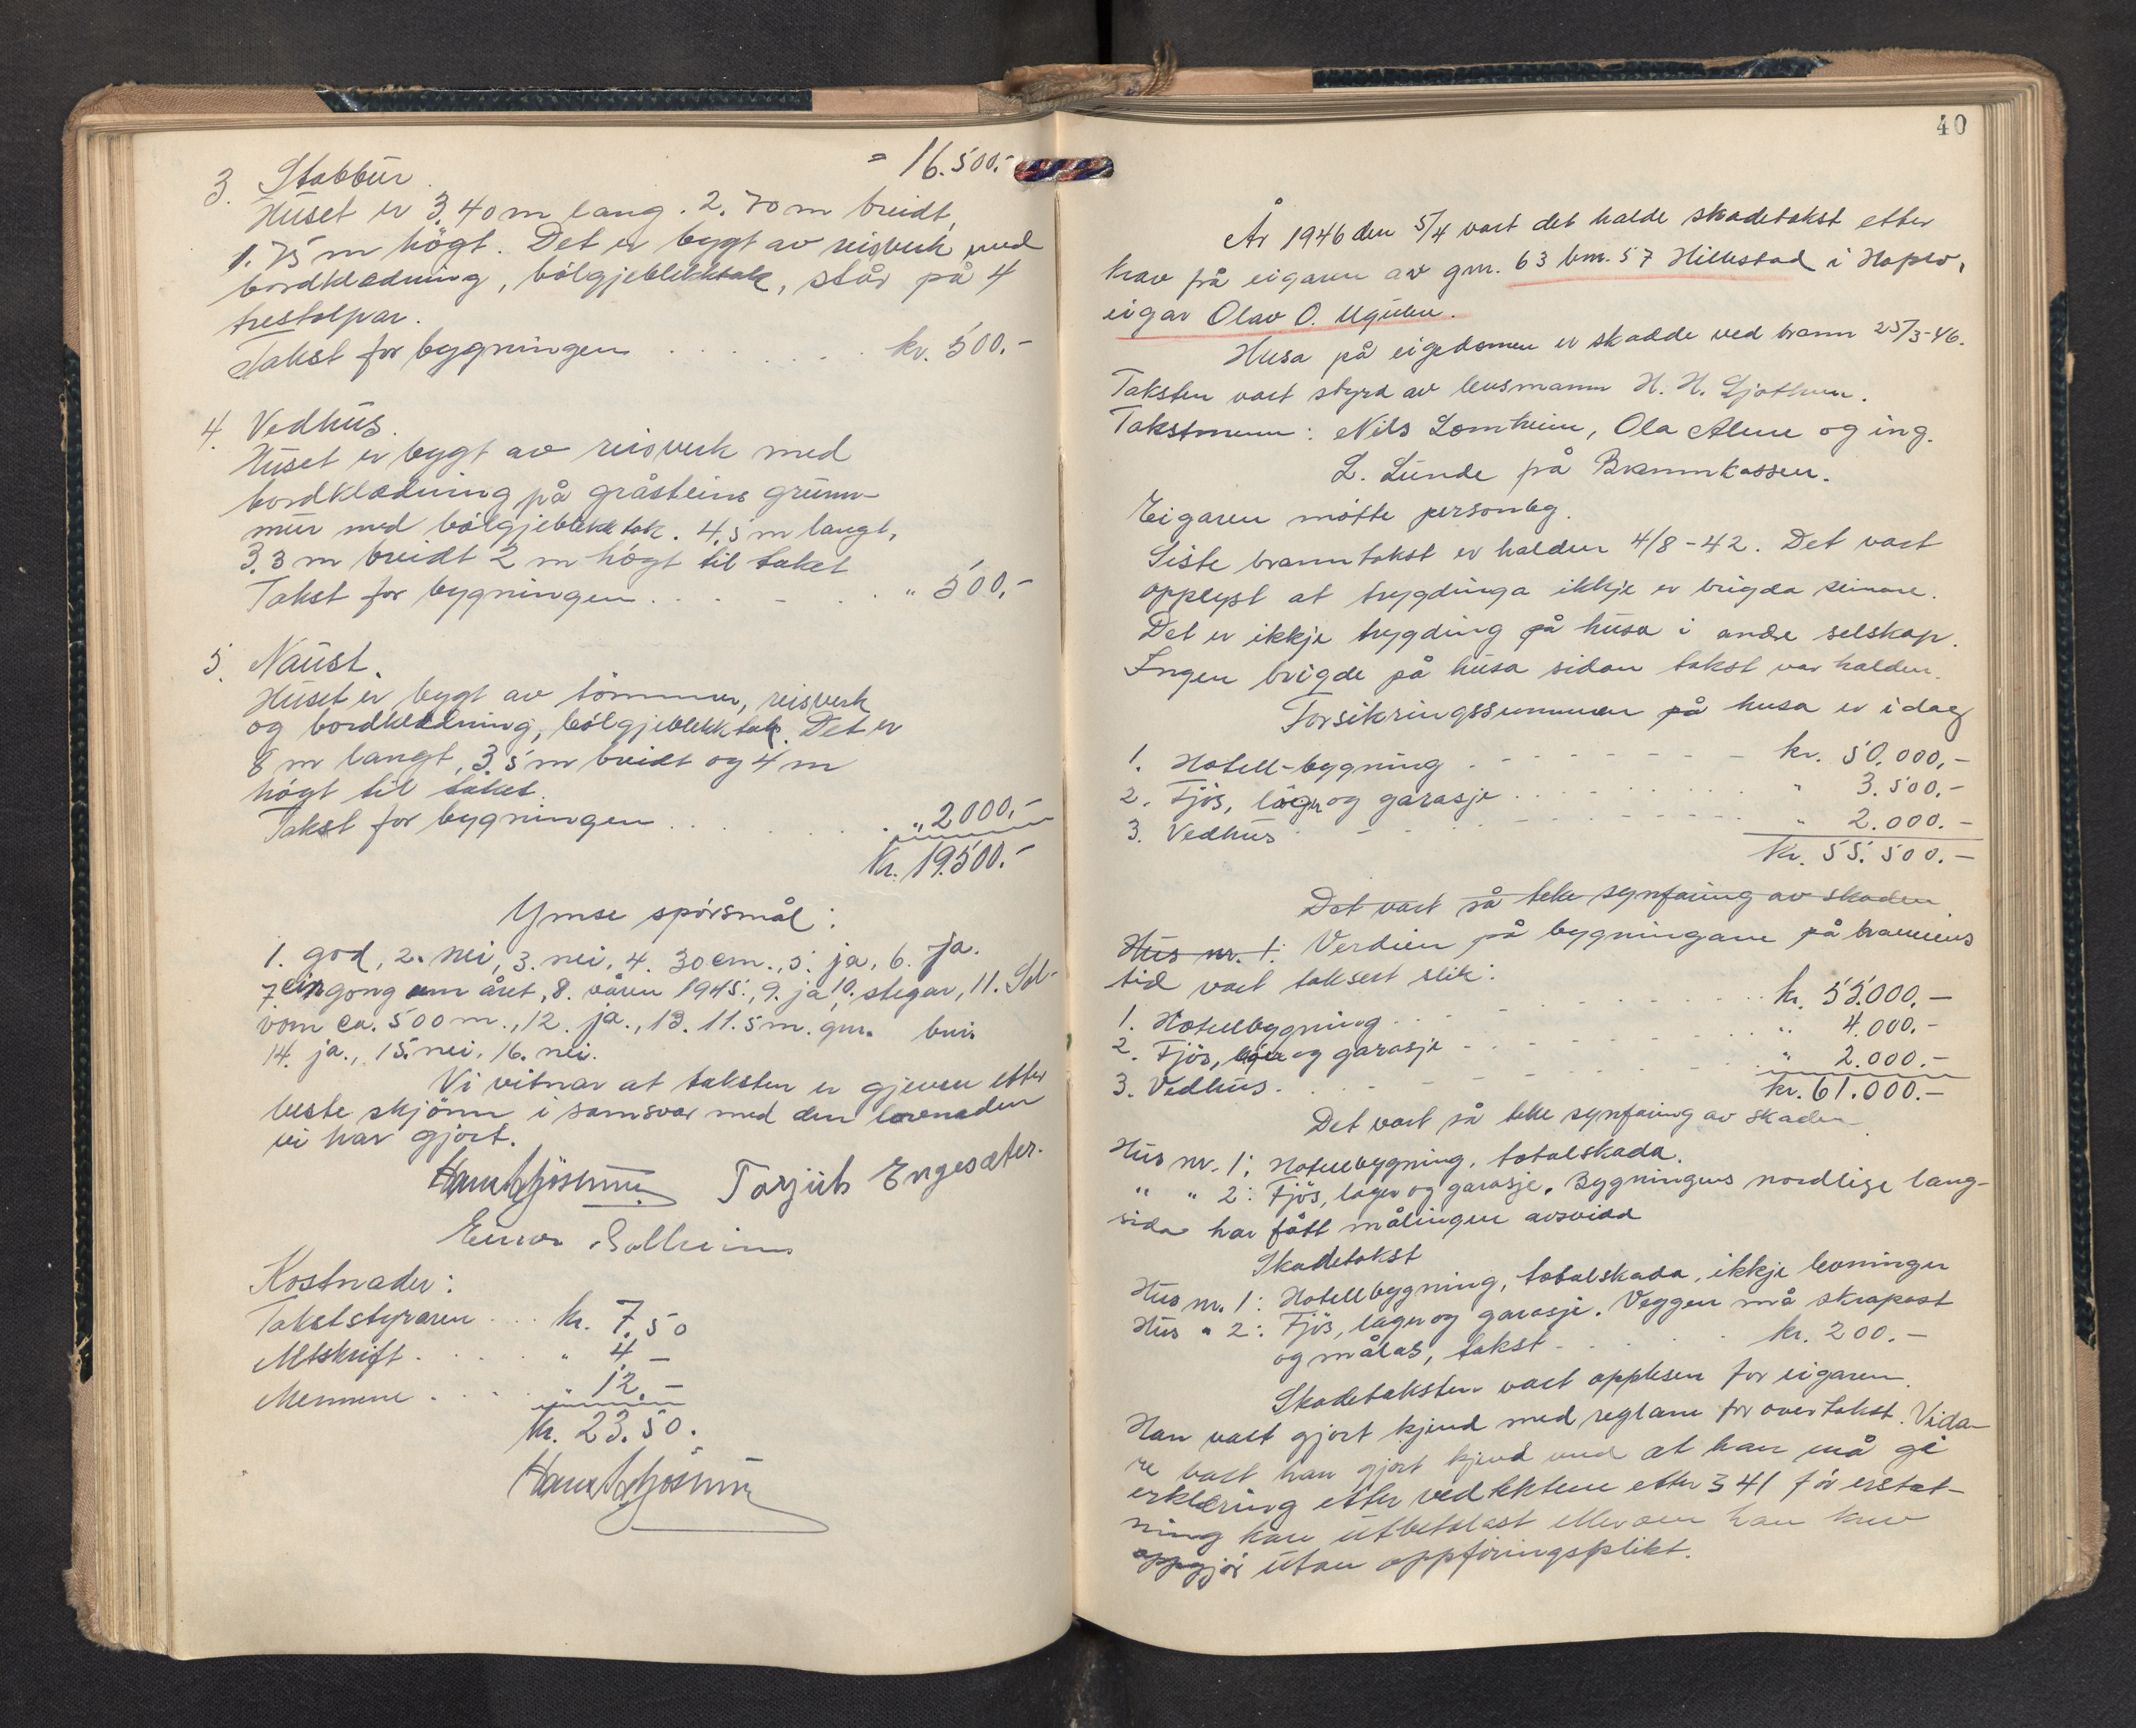 = 16.500.-
3. Stabbur.
Huset er 3.40 m lang. 2.70 m breidt,
1.75 m högt. Det er bygt av reisverk med
bordklædning, bölgjeblikktak, står på 4
trestolpar.
Takst for bygningen . . . . . . . kr. 500.-
4. Vedhus.
Huset er bygt av reisverk med
bordklædning på gråsteins grunn-
mur med bölgjeblikktak. 4,5 m langt,
3.3 m breidt 2 m högt til taket
Takst for bygningen . . . . . . " 500.-
5. Naust.
Huset er bygt av tömmer, reisverk
og bordklædning, bölgjeblikktak. Det er
8 m langt, 3.5 m breidt og 4 m
högt til taket.
Takst for bygningen . . . . . . " 2000.-
Kr. 19500.-
Ymse spörsmål:
1. god, 2. nei, 3. nei, 4. 30 cm., 5. ja, 6. ja.
7. ein gong um året, 8. våren 1945., 9. ja 10. stigar, 11. Sel-
vom ca. 500 m., 12. ja., 13. 11.5 m. gnr. bnr.
14. ja., 15. nei. 16. nei.
Vi vitnar at taksten er gjeven etter
beste skjönn i samsvar med den lovnaden
vi har gjort.
Torjuls Engesæter.
Einar Solheim
Kostnader:
Takststyraren . . . kr. 7.50
Utskrift . . . . . " 4.-
Mennene . . . . " 12.-
Kr. 23.50.
40
År 1946 den 5/4 vart det halde skadetakst etter
krav frå eigaren av gnr. 63 bnr. 57 Hillestad i Hafslo,
eigar Olav O. Ugulen.
Husa på eigedomen er skadde ved brann 25/3-46.
Taksten vart styrd av lensmann H. H. Sjøthun.
Takstmenn: Nils Lomheim, Ola Alme og ing.
L. Lunde frå Brannkassen.
Eigaren møtte personleg.
Siste branntakst er halden 4/8-42. Det vart
opplyst at trygdinga ikkje er brigda seinare.
Det er ikkje trygding på husa i andre selskap.
Ingen brigde på husa sidan takst var halden.
Forsikringssummen på husa er idag
1. Hotell-bygning . - - - - - - kr. 50.000,-
2. Fjös, lager og garasje . . . . . . . " 3.500.-
3. Vedhus . - - - - - " 2.000.-
Kr. 55.500.-
Det vart så teke synfaring av skaden
Hus nr. 1: Verdien på bygningane på brannens
tid vart taksert slik:
1. Hotellbygning . . . - - - . . . . kr. 55.000.-
2. Fjös, lager og garasje - - - - - . . . " 4.000.-
3. Vedhus . . - - - - . . " 2.000.-
kr. 61.000.-
Det vart så teke synfaring av skaden
Hus nr. 1: Hotellbygning, totalskada.
" " 2: Fjös, lager og garasje. Bygningens nordlige lang-
side har fått målingen avsvidd
Skadetakst
Hus nr. 1: Hotellbygning, totalskada, ikkje levninger
Hus " 2: Fjös, lager og garasje. Veggen må skrapast
og målas, takst - . . . kr. 200.-
Skadetaksten vart opplesen for eigaren.
Han vart gjort kjend med reglane for overtakst. Vida-
re vart han gjort kjend med at han må gi
erklæring etter vedtektene etter § 41 för erstat-
ning kan utbetalast eller om han krev
oppgjör utan oppföringsplikt.